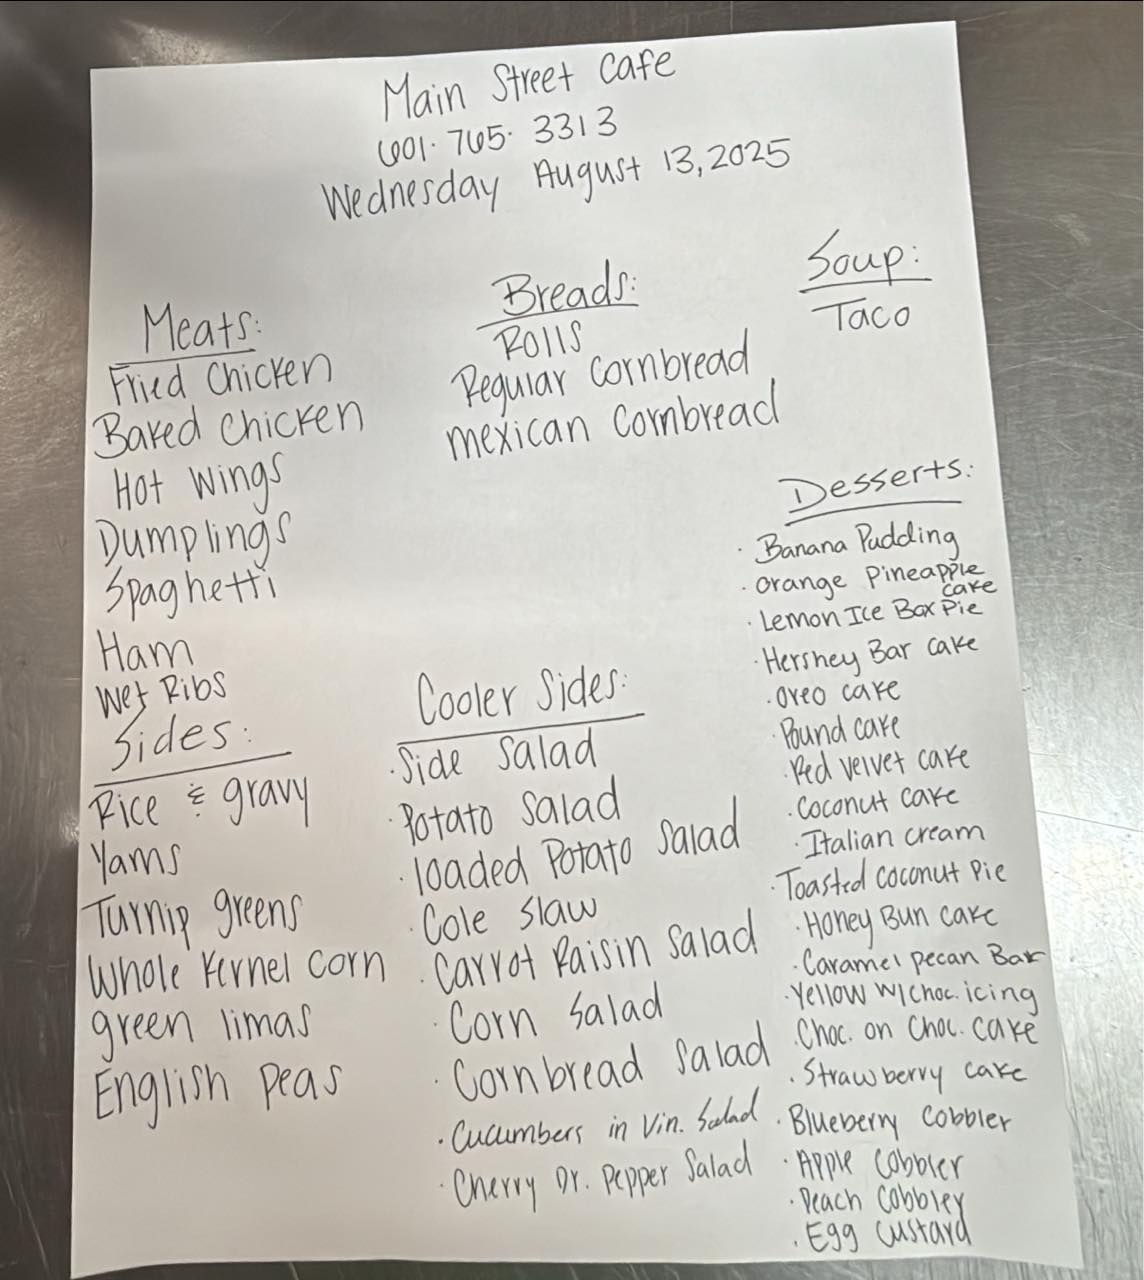 Main Street Cafe
601. 765. 3313
Wednesday August 13, 2025
Meats:
Fried Chicken
Baked Chicken
Hot Wings
Dumplings
Spaghetti
Ham
Wet Ribs
Sides:
Rice & gravy
Yams
Turnip greens
Whole Kernel Corn
green limas
English Peas
Breads:
Rolls
Regular Cornbread
mexican Cornbread
Cooler Sides:
· Side Salad
· Potato Salad
· loaded Potato Salad
· Cole Slaw
· Carrot Raisin Salad
· Corn Salad
· Cornbread Salad
· Cucumbers in Vin. Salad
· Cherry Dr. Pepper Salad
Soup:
Taco
Desserts:
· Banana Pudding
· Orange Pineapple
cake
· Lemon Ice Box Pie
· Hershey Bar Cake
· Oreo cake
· Pound cake
· Red velvet cake
· Coconut cake
· Italian cream
· Toasted Coconut Pie
· Honey Bun Cake
· Caramel pecan Bar
· Yellow w/choc. icing
· Choc. on Choc. cake
· Strawberry cake
· Blueberry Cobbler
· Apple Cobbler
· Peach Cobbler
· Egg Custard